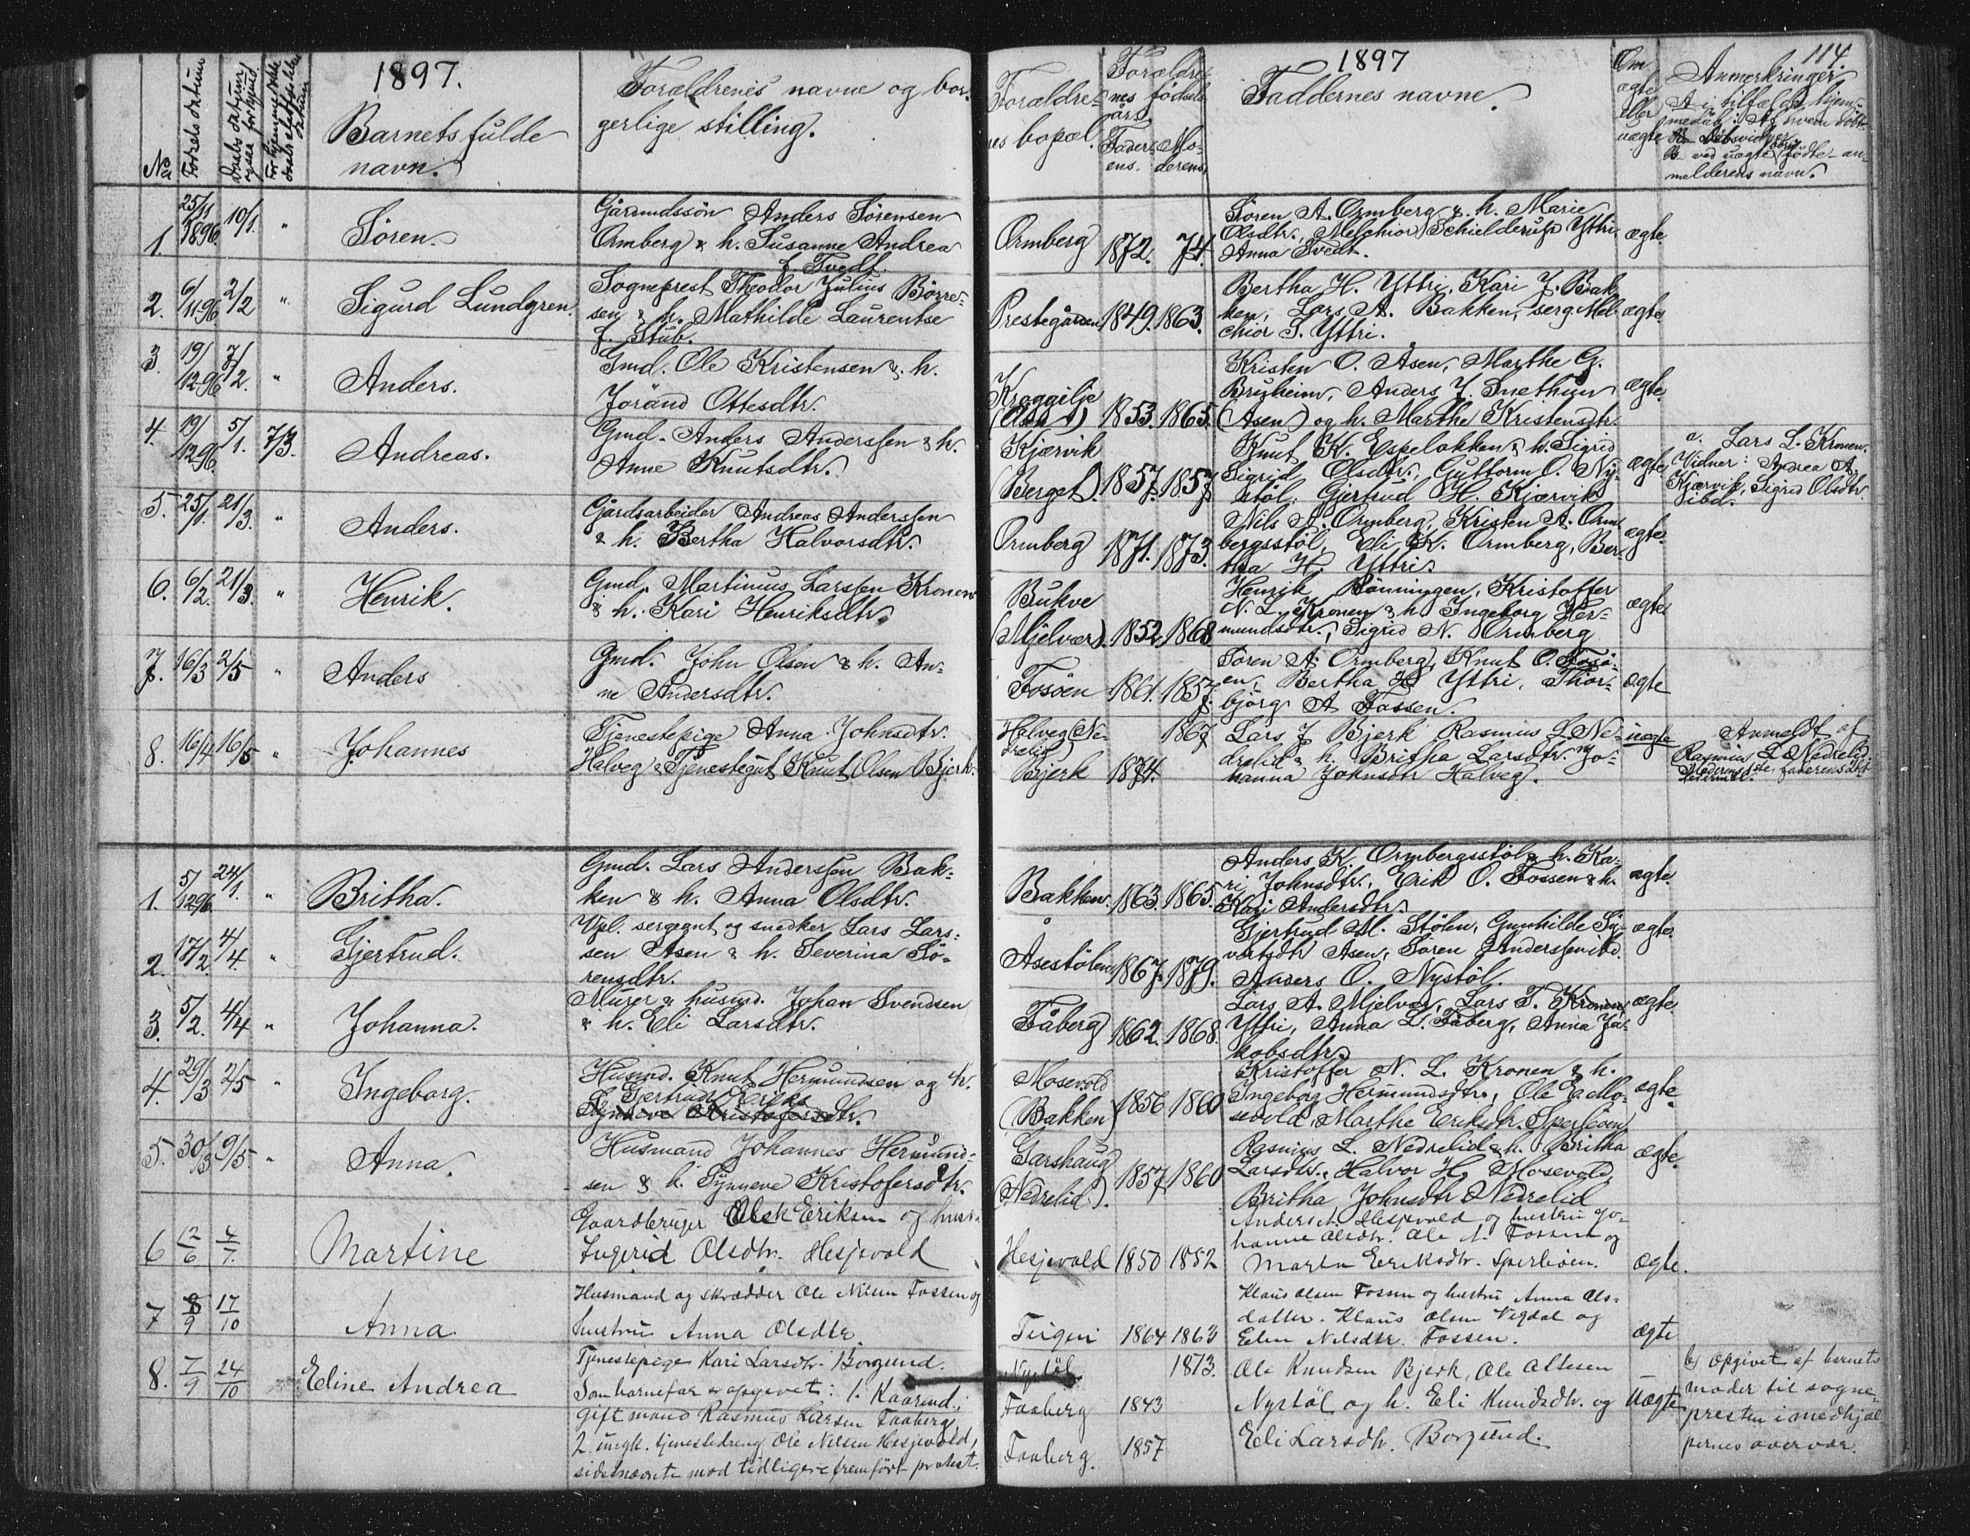 1897.
No
Fødsels datum
Barnets fulde
navn.
Forældrenes navne og bor-
gerlige stilling.
Forældre-
nes bopæl.
Forældre-
nes fødsels
års
Fader-
ens.
Mo-
derens.
1897
Faddernes navne.
Om
ægte
eller
uægte
114.
Anmerkninger.
A i tilfælde hjem-
medåb: Af hvem døbt
B ved uægte fødte an-
melderens navn.
1. 25/11 1896. 10/1. " Søren.
Gårmundssøn Anders Sørensen
Ormberg & h. Susanne Andrea
f. Tvedt.
Ormberg 1872. 74.
Søren A. Ormberg & h. Marie
Olsdtr., Melchior Schielderup Yttri,
Anna Tvedt.
ægte
2. 6/11 96 2/2 " Sigurd Lundgren.
Sogneprest Theodor Julius Børre-
sen & h. Mathilde Laurentse
f. Stub.
Prestegården 1849. 1863.
Bertha H. Yttri, Kari J. Bak-
ken, Lars A. Bakken, serg. Mel-
chior S. Yttri.
ægte.
3. 19/12 96 7/2. " Anders.
Gmd. Ole Kristensen & h.
Jørånd Ottesdtr.
Kroggilje
1853. 1865.
Kristen O. Åsen, Marthe G.
Bruheim, Anders J. Snethun
(Åsen) og h. Marthe Kristensdtr.
ægte.
4. 19/12 96. 5/1. 7/3. Andreas.
Gmd. Anders Anderssen & h.
Anne Knutsdtr.
Kjærvik
(Berget). 1857. 1857
Knut K. Espelokken & h. Sigrid
Sigrid Olsdtr., Guttorm O. Ny-
støl, Gjertrud H. Kjærvik
ægte.
a. Lars L. Kronen.
Vidner: Andrea A.
Kjærvik, Sigrid Olsdtr.
ibd.
5. 25/1. 21/3. " Anders.
Gårdsarbeider Andreas Anderssen
& h. Bertha Halvorsdtr.
Ormberg 1871. 1873.
Nils A. Ormberg, Kristen A. Orm-
bergsstøl, Eli K. Ormberg, Ber-
tha H. Yttri.
ægte.
6. 6/2. 21/3. " Henrik.
Gmd. Martinius Larssen Kronen
& h. Kari Henriksdtr.
Bukve
(Mjelvær). 1852. 1868
Henrik Rønningen, Kristoffer
N. L. Kronen & h. Ingeborg Her-
mundsdtr., Sigrid N. Ormberg
ægte
7. 16/3 2/5 " Anders
Gmd. John Olsen & h. An-
ne Andersdtr.
Fosøen 1861. 1857.
Søren A. Ormberg, Knut O. Fosø-
en, Bertha H Yttri, Thor-
bjørg A Fossen.
ægte
8. 16/4 16/5 " Johannes
Tjenestepige Anna Johnsdtr.
Halveg & Tjenestegut Knut Olsen Bjerk.
Halveg (Ne-
drelid
Bjerk 1874. 1867
Lars J Bjerk Rasmus L Ne-
drelid & h. Britha Larsdtr. Jo-
hanna Johnsdtr Halveg.
uægte
Anmeldt af
Rasmus L Nedrelid
1. 5/12 96. 24/1. " Britha.
Gmd. Lars Anderssen Bak-
ken & h. Anna Olsdtr.
Bakken. 1863. 1865.
Anders K. Ormbergsstøl & h. Ka-
ri Johnsdtr., Erik O. Fossen & h.
Kari Andersdtr.
ægte.
2. 17/2 4/4. " Gjertrud.
Vpl. sergeant og snedker Lars Lars-
sen Åsen & h. Severina Sø-
rensdtr.
Åsestølen 1867. 1879.
Gjertrud M. Stølen, Gunhilde Sy-
vertsdtr Åsen, Søren Anderssen ibd.
Anders O. Nystøl.
ægte.
3. 5/2. 4/4 " Johanna.
Murer & husmd. Johan Svendsen
& h. Eli Larsdtr.
Fåberg 1862. 1868.
Lars A. Mjelvær, Lars T. Kronen,
Yttri, Anna L. Fåberg, Anna Ja-
kobsdtr.
ægte.
4. 29/3 2/5 " Ingeborg.
Husmd. Knut Hermundsen og h.
Gjertrud Eriks
Synneve Kristofersdtr.
Mosevold
(Bakken) 1856 1860
Kristoffer N. L. Kronen & h.
Ingeborg Hermundsdtr., Ole E. Mo-
sevold, Marthe Eriksdtr. Sperleøen.
ægte
5. 30/3 9/5 " Anna.
Husmand Johannes Hermund-
sen & h. Synneve Kristofersdtr.
Garshaug
(Nedrelid). 1857 1860
Rasmus L. Nedrelid & h. Britha
Larsdtr., Halvor H. Mosevold,
Britha Johnsdtr Nedrelid
ægte.
6 12/6 4/7. Martine
Gaardbruger Ole Eriksen og hust.
Ingerid Olsdtr. Hesjevold
Hesjevold 1850 1852
Anders N. Hesjevold og hustru Jo-
hanne Olsdtr. Ole N. Fossen og
Marta Eriksdtr. Sperleøen.
ægte.
7 8/9 17/10 Anna
Husmand og skrædder Ole Nilsen Fossen og
hustru Anna Olsdtr.
Teigen 1864 1863
Klaus Olsen Fossen og hustru Anna Ols-
datter. Klaus Olsen Vigdal og
Elen Nilsdtr. Fossen.
ægte
8. 7/9 24/10 Eline Andrea
Tjenestepige Kari Larsdtr. Borgund.
Som barnefar er opgivet: 1. Kaarmd.,
gift mand Rasmus Larsen Faaberg,
2. ungk. tjenestedreng Ole Nilsen Hesjevold,
sidstnævnte mod tidligere fremført protest.
Nystøl 1873.
Faaberg 1843
Faaberg. 1857
Ole Knudsen Bjerk, Ole Ottesen
Nystøl og h. Eli Knudsdtr. og
Eli Larsdtr. Borgund.
Uægte
b) Opgivet af barnets
moder til sogne-
presten i medhjæl-
pernes overvær.